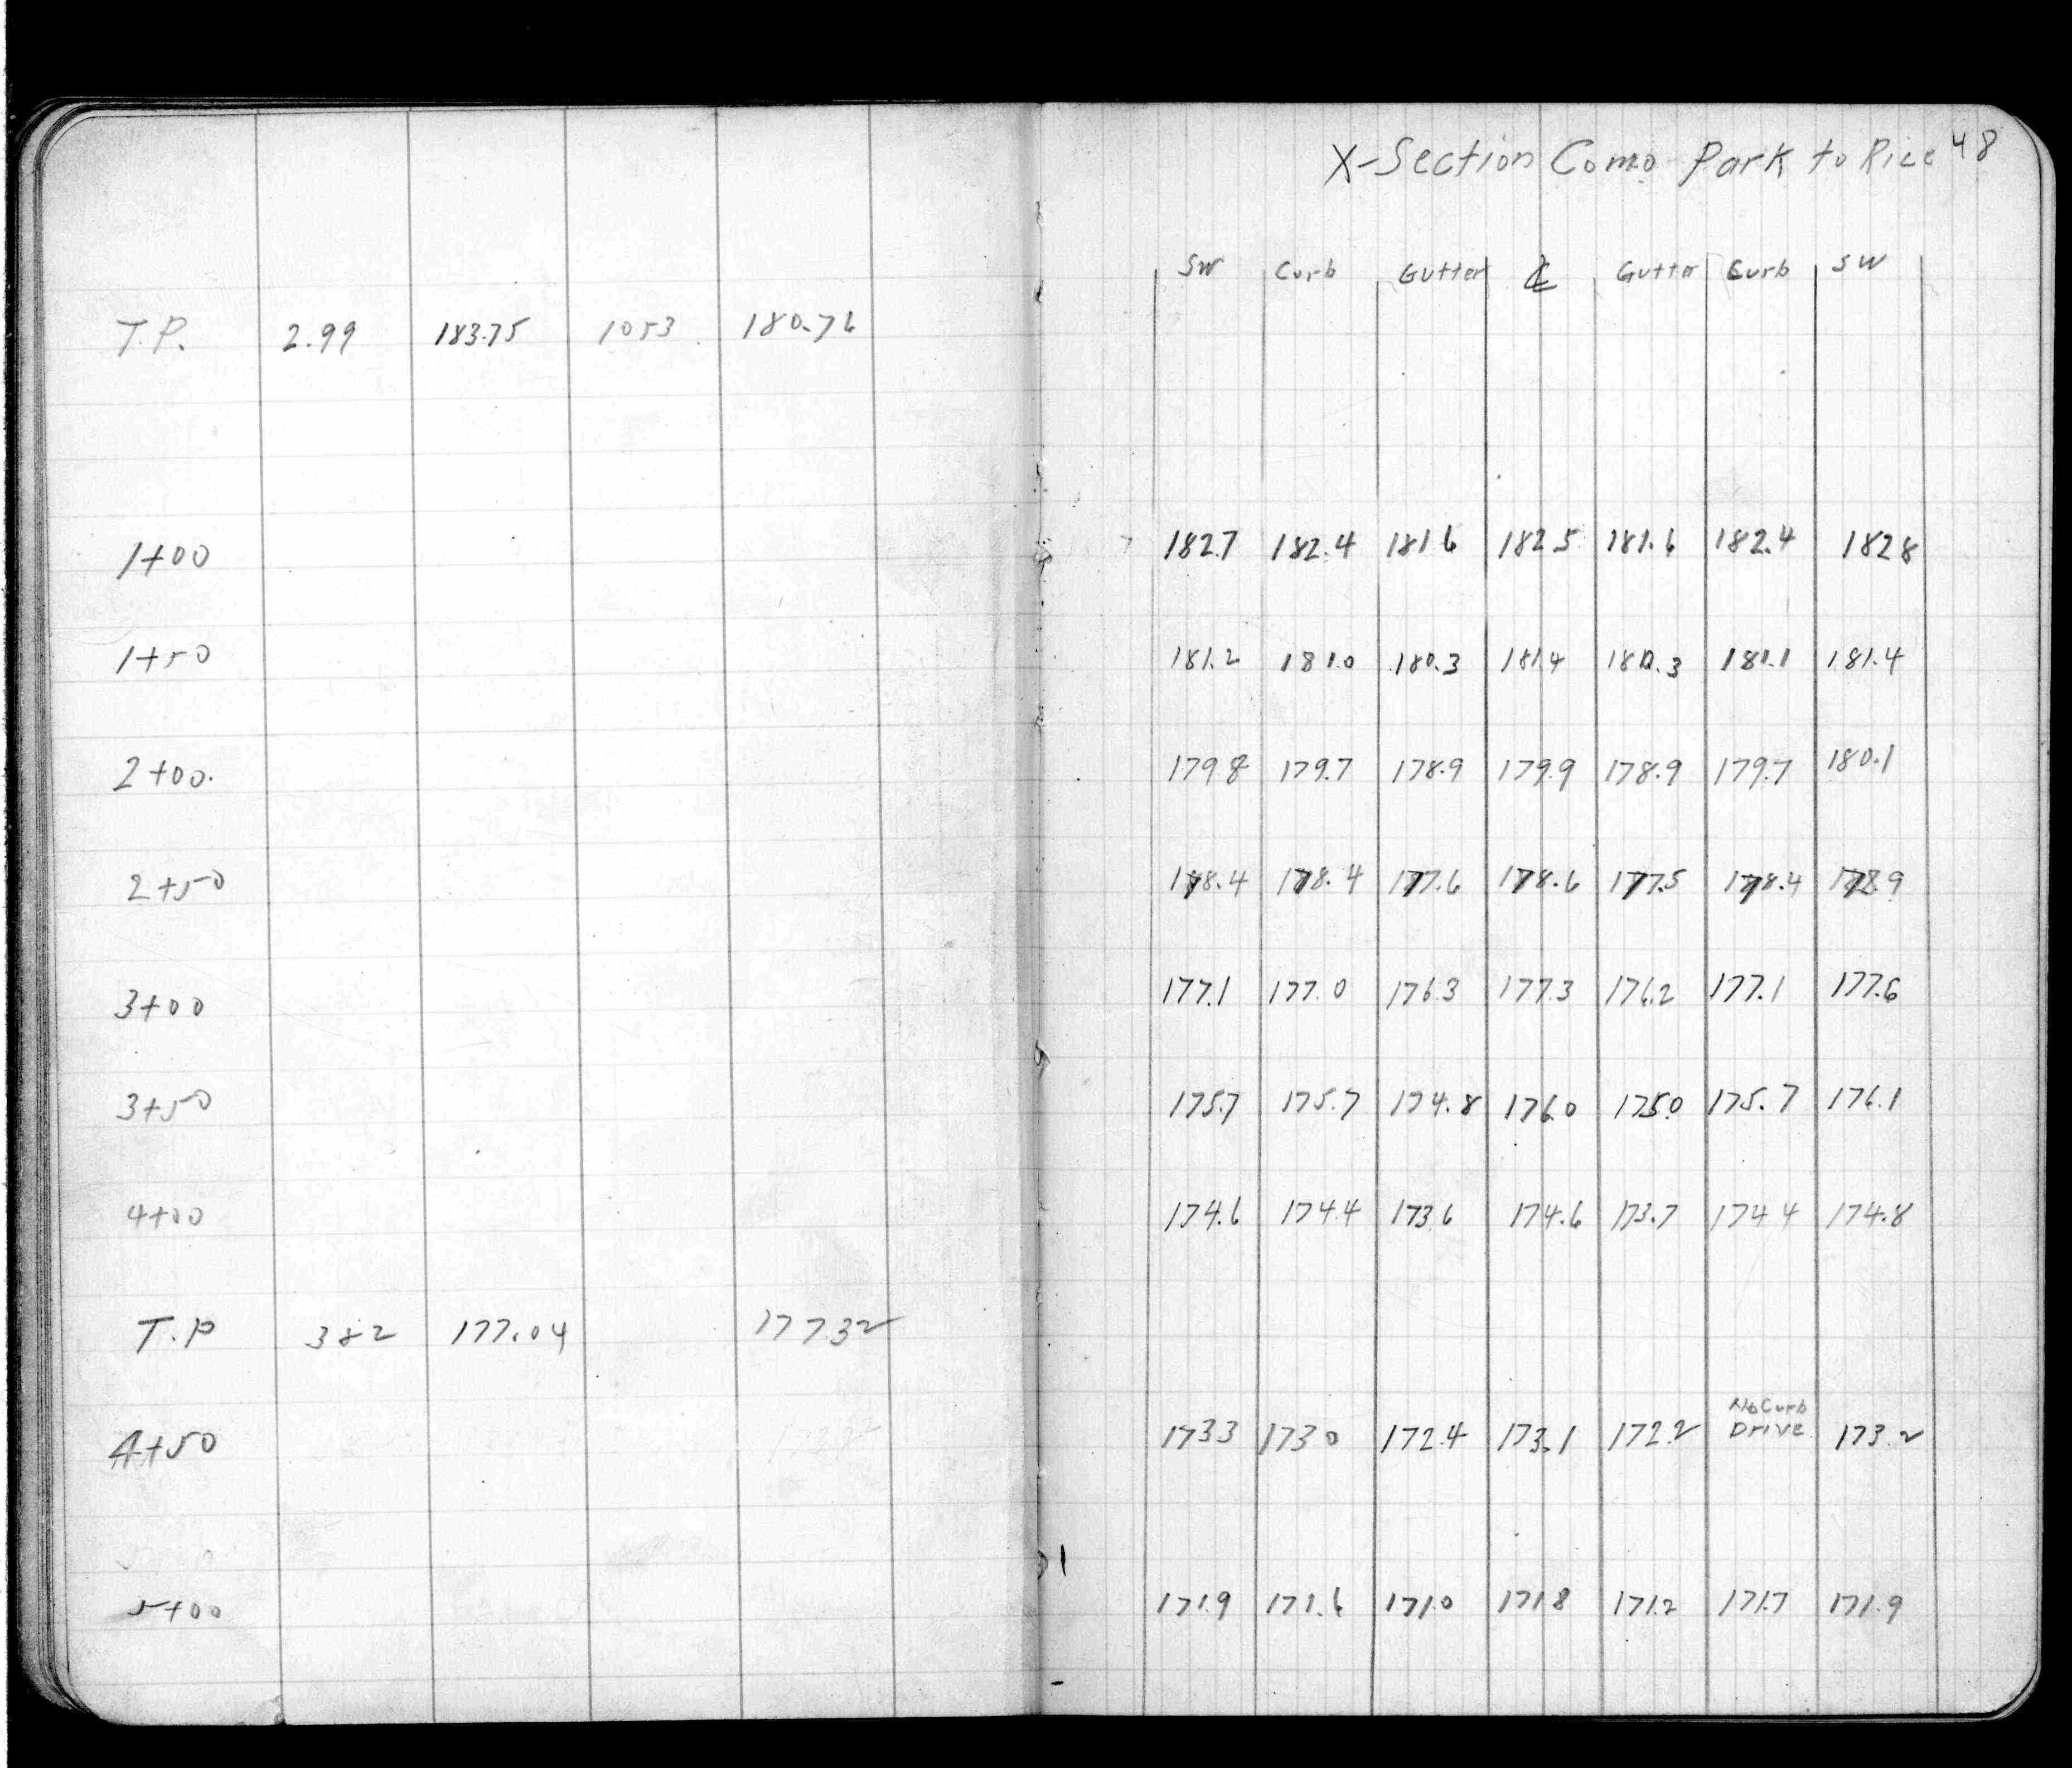 X-Section Como Park to Rice 48
SW Curb Gutter ℄ Gutter Curb SW
T.P. 2.99 183.75 1053 180.76
1+00 182.7 182.4 181.6 182.5 181.6 182.4 182.8
1+50 181.2 181.0 180.3 181.4 180.3 181.1 181.4
2+00. 179.8 179.7 178.9 179.9 178.9 179.7 180.1
2+50 178.4 178.4 177.6 178.6 177.5 178.4 178.9
3+00 177.1 177.0 176.3 177.3 176.2 177.1 177.6
3+50 175.7 175.7 174.8 176.0 175.0 175.7 176.1
4+00 174.6 174.4 173.6 174.6 173.7 174.4 174.8
T.P 382 177.04 177.32
No Curb
4+50 173.3 173.0 172.4 173.1 172.2 Drive 173.2
5+00 171.9 171.6 171.0 171.8 171.2 171.7 171.9